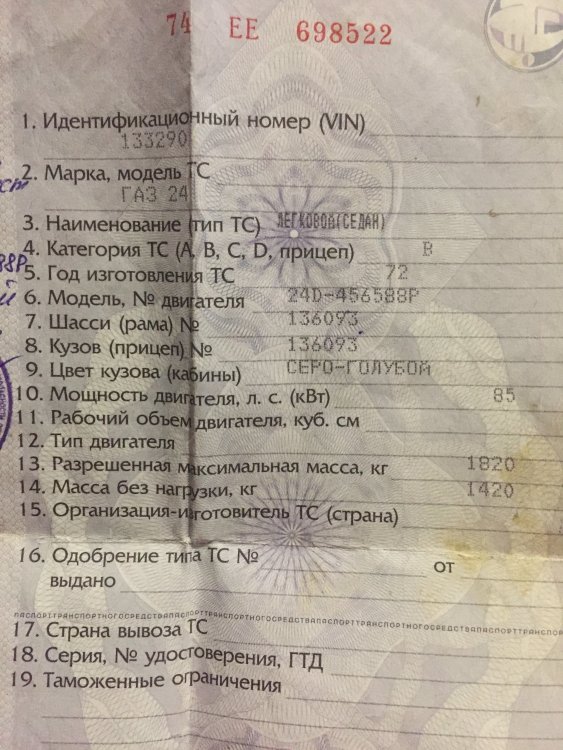 74 ЕЕ 698522
1. Идентификационный номер (VIN)
133290
2. Марка, модель ТС
ГАЗ 24
3. Наименование (тип ТС) ЛЕГКОВОЙ(СЕДАН)
4. Категория ТС (А, В, С, D, прицеп) В
5. Год изготовления ТС 72
6. Модель, № двигателя 24D-456588Р
7. Шасси (рама) № 136093
8. Кузов (прицеп) № 136093
9. Цвет кузова (кабины) СЕРО-ГОЛУБОЙ
10. Мощность двигателя, л. с. (кВт) 85
11. Рабочий объем двигателя, куб. см
12. Тип двигателя
13. Разрешенная максимальная масса, кг 1820
14. Масса без нагрузки, кг 1420
15. Организация-изготовитель ТС (страна)
16. Одобрение типа ТС № от
выдано
17. Страна вывоза ТС
18. Серия, № удостоверения, ГТД
19. Таможенные ограничения